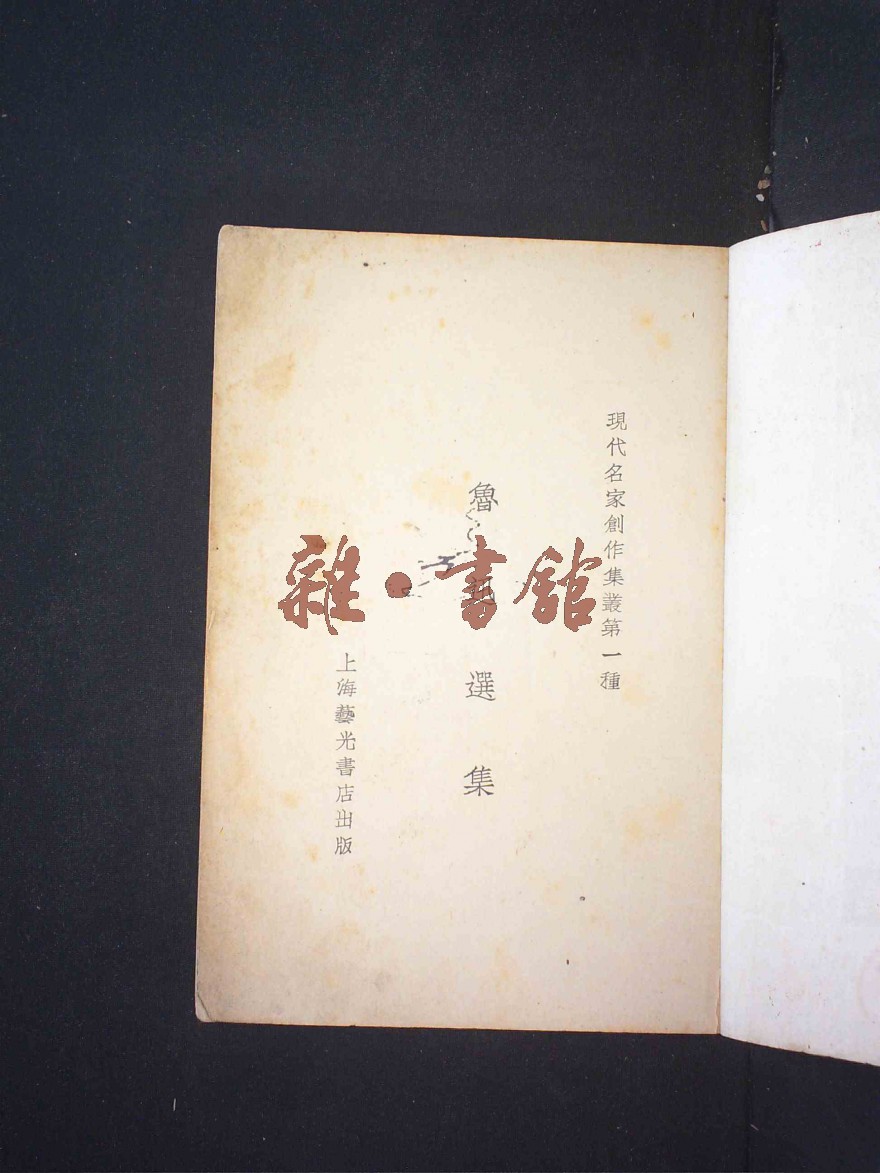 現代名家創作集叢第一種
魯迅選集
上海藝光書店出版
雜·書館